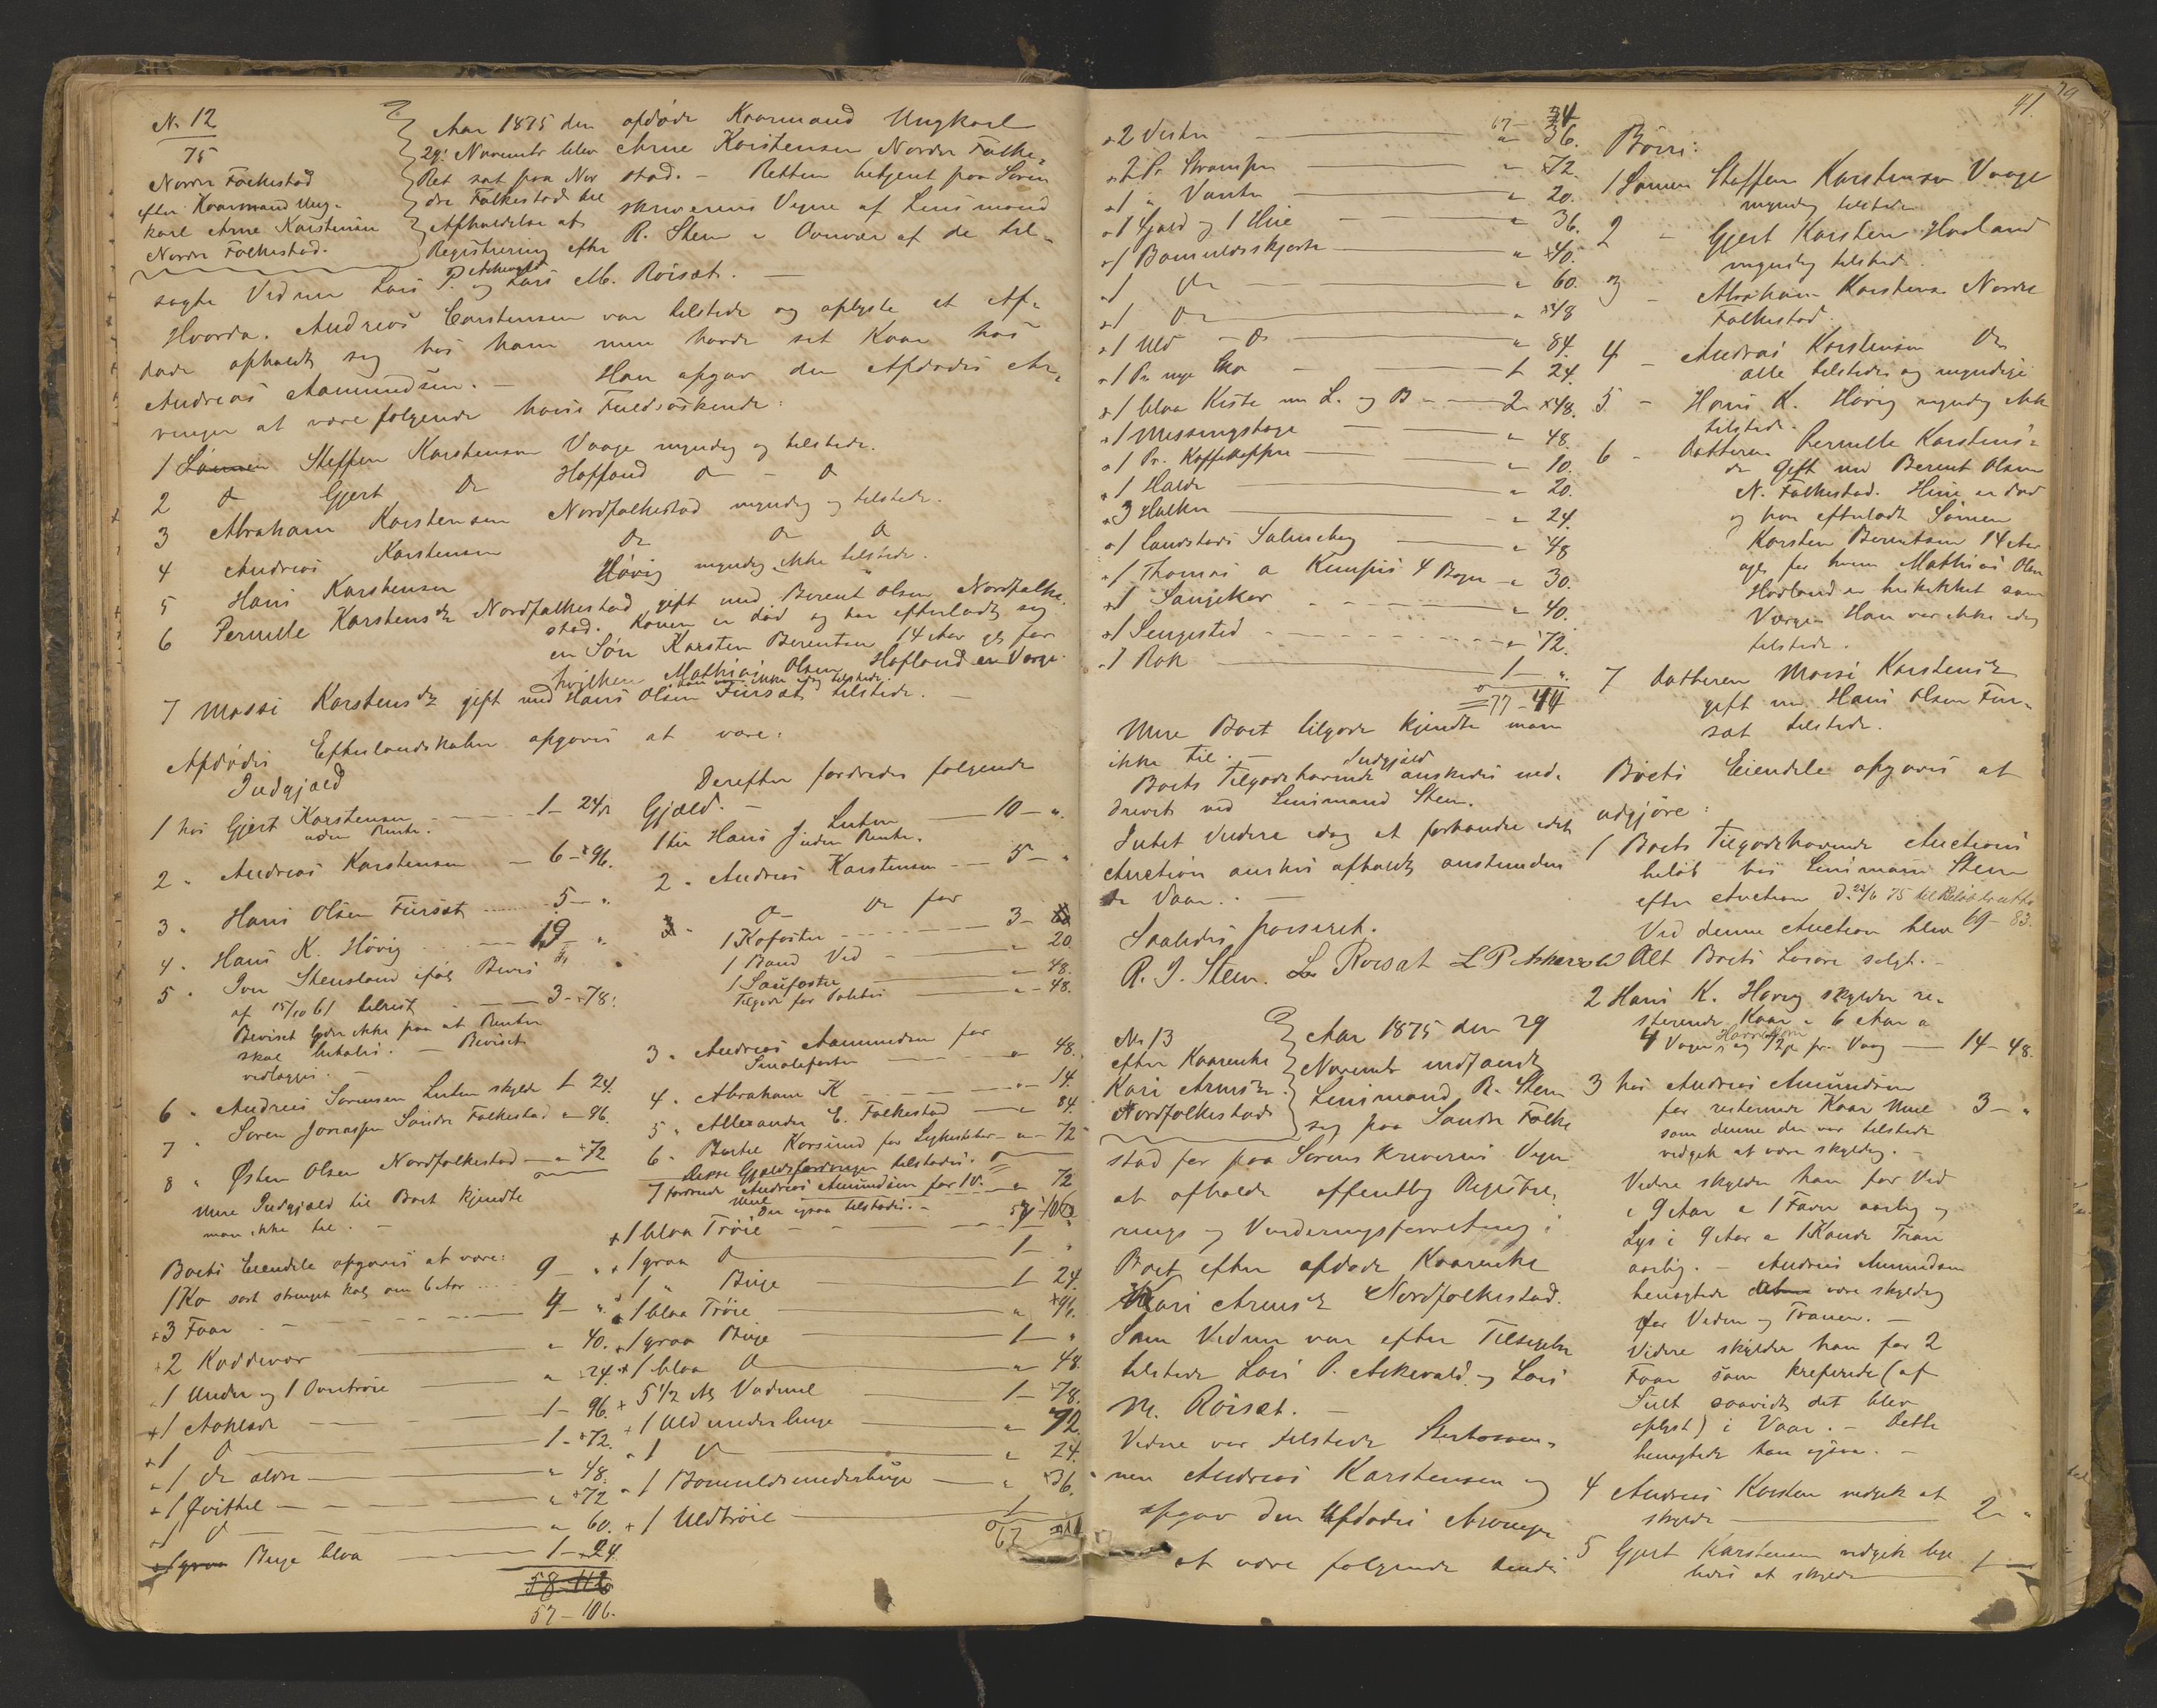 No 12
75
Nordre Folkestad
efter Kaarmand Ung-
karl Arne Karstensen
Nordre Folkestad.
Aar 1875 den
29: Novembr blev
Ret sat paa Nor
dre Folkestad til
Afholdelse af
Registrering efter
afdøde Kaarmand Ungkarl
Arne Karstensen Nordre Folke-
stad. - Retten betjent paa Soren
skriverens Vegne af Lensmand
R. Sten i Overvær af de til-
sagte Vidner Lars P. Askevold og Lars M. Röisæt. -
Hvorda. Andreas Carstensen var tilstede og oplyste at Af-
døde opholdt sig hos ham men havde sit Kaar hos
Andreas Aamundsen. - Han opgav den Afdødes Ar-
vinger at være følgende hans Fuldsöskende:
1 Steffen Karstensen Vaage myndig og tilstede.
2 do Gjert do Hofland do - do
3 Abraham Karstensen Nordfolkestad myndig og tilstede.
4 Andreas Karstensen do do do
5 Hans Karstensen Hövig myndig ikke tilstede.
6 Pernille Karstensdr Nordfolkestad gift med Berent Olsen Nordfolke-
stad. Konen er död og har efterladt sig
en Sön Karsten Berentsen 14 Aar gl. for
hvilken Mathias Olsen Hofland er Værge.
han var ikke idag tilstede.
7 Massi Karstensdr gift med Hans Olsen Fursæt tilstede. -
Afdødes Efterladenskaber opgaves at være:
Indgjæld
1 hos Gjert Karstensen - 1 - 24 s
uden Rente.
2 " Andreas Karstensen - 6 - 96.
3 " Hans Olsen Fursæt 5 - "
4 " Hans K. Hövig 19 - "
5 " Iver Stensland ifølg Bevis
af 15/10 61 tilrest - 3 - 78.
Beviset lyder ikke paa at Renter
skal betales. - Beviset
vedlægges. -
6 " Andreas Sorensen Luten skylder 1 24.
7 " Soren Jonassen Söndre Folkestad " 96.
8 " Østen Olsen Nordfolkestad " 72
Mere Indgjæld til Boet kjendte
man ikke til. -
Boets Eiendele opgaves at være:
1 Ko sort 9 - "
3 Faar 4 - "
2 Koddevar " 40.
1 Under og 1 Overtröie " 24.
1 Aaklæde 1 - 96.
1 do 1 - 72.
1 do ældre " 48.
1 Qvitthel " 72
1 do " 60.
Buxe blaa 1 - 24.
58 - 112
57 - 106.
Derefter fordredes følgende
Gjæld. -
1 til Hans J Luten 10 - "
uden Rente.
2 " Andreas Karstensen 5 - "
do do for
1 Kofoster 3 -
1 Baand Ved " 20.
1 Sauefoster " 48.
Tilgode for " - 48.
3 " Andreas Aamundsen for
Smalefoster " 48.
4 " Abraham K " - 14.
5 " Allexander E. Folkestad " 84.
6 " Bertil Korsund for " - 72
Disse Gjældsfordringer tilstodes.
7 fordrede Andreas Amundsen for " 72
Den ogsaa tilstodes. -
1 blaa Tröie
1 graa do 1 - "
1 " Buxe 1 24.
1 blaa Tröie " 96.
1 graa Buxe 1 - "
1 blaa do " 48.
5 1/2 Al. Vadmel 1 - 78.
1 Uld underbuxe " 92.
1 do " 24.
1 Bomuldsunderbuxe " 36.
1 Uldtröie 1
67
41.
67 - 34
2 Vester " 36.
2 Pr. Strømper " 72.
1 " Vanter " 20.
1 Skjærf og 1 Hue " 36.
1 Bomuldsskjorte " 40.
1 do " 60.
1 do " 48
1 Uld - do " 84.
1 Pr. nye Sko 1 24.
1 blaa Kiste m L. og B 2 48.
1 Messingstage " 48.
1 Pr. Koffekopper " 10.
1 Halde " 20.
3 Halker " 24.
1 Landstads Salmebog " 48
1 Thomas a Kempis 4 Boger " 30.
1 Sangekor " 40.
1 Sengested " 72.
1 Rok 1 - "
77 - 44
Mere Boet tilgode kjendte man
ikke til. -
Boets Tilgodehavende Indgjæld önskedes ind-
drevet ved Lensmand Sten.
Intet videre idag at forhandle idet
Auction önskes afholdt anstundende
Vaar. -
Saaledes passeret.
R. J. Sten. L. M. Roisæt L P Askevold
No 13
efter Kaarenke
Kari Arnesdr
Nordfolkestad
Aar 1875 den 29
Novembr indfandt
Lensmand R. Sten
sig paa Söndre Folke
stad for paa Sorenskriverens Vegne
at afholde offentlig Registre-
rings og Vurderingsforretning i
Boet efter afdøde Kaarenke
Kari Arnesdr Nordfolkestad.
Som Vidner var efter Tilsigelse
tilstede Lars P. Askevold og Lars
M. Röisæt. -
Videre var tilstede
Andreas Karstensen og
opgav den Afdødes Arvinger
at være følgende hendes
Börn:
1 Sönnen Steffen Karstensen Vaage
myndig tilstede
2 - Gjert Karstens Hovland
myndig tilstede.
3 - Abraham Karstens Nordre
Folkestad.
4 - Andreas Karstensen do
alle tilstede og myndige
5 - Hans K. Hövig myndig ikke
tilstede.
6 - datteren Pernille Karstens-
dr gift med Berent Olsen
N. Folkestad. Hun er död
og har efterladt Sönnen
Karsten Berentsen 14 Aar
for hvem Mathias Olsen
Hovland er beskikket som
Værge. Han var ikke idag
tilstede.
7 datteren Massi Karstensdr
gift m Hans Olsen Fur-
sæt tilstede.
Boets Eiendele opgaves at
udgjöre:
1 Boets Tilgodehavende Auctions
belöb hos Lensmand Sten
efter Auction d. 22/6 75 til Belöb br.
Ved denne Auction blev 69 - 83.
Alt Boets Lösöre solgt. -
2 Hans K. Hovig skylder re-
sterende Kaar i 6 Aar a
4 Voger Havrekorn og 72 s pr. Vaag 14 - 48.
3 hos Andreas Amundsen
for resterende Kaar Meel 3 - "
som denne der var tilstede
vedgik at være skyldig. -
Videre skylder han for Ved
i 9 Aar a 1 Favn aarlig og
Lys i 9 Aar a 1 Kande Tran
aarlig. - Andreas Amundsen
benegtede at være skyldig
for Veden og Tranen. -
Videre skylder han for 2
Faar som kreperede (af
Sult saavidt det blev
oplyst) i Vaar. - Dette
benegtede han ogsaa. -
4 Andreas Karsten vedgik at
skylde 2 - "
5 Gjert Karstensen vedgik lige
ledes at skylde 1 -